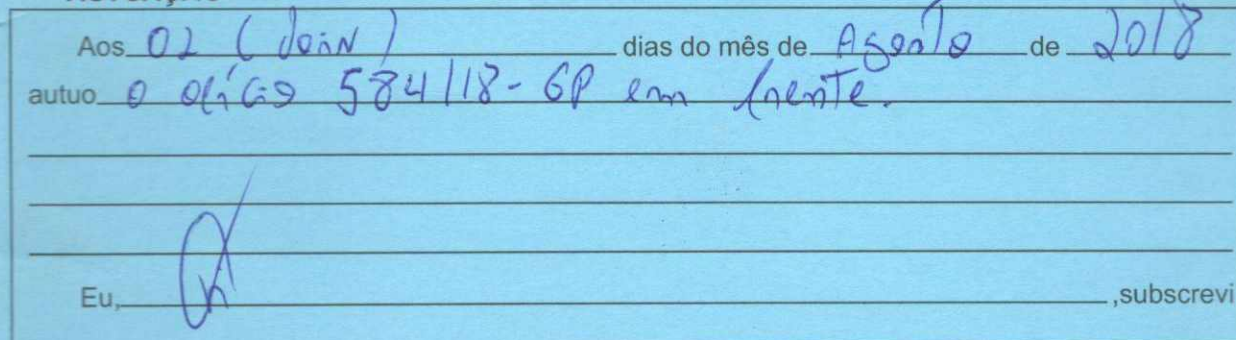 Aos 02 (dois) dias do mês de Agosto de 2018
autuo o ofício 584/18-GP em frente.
Eu, ,subscrevi